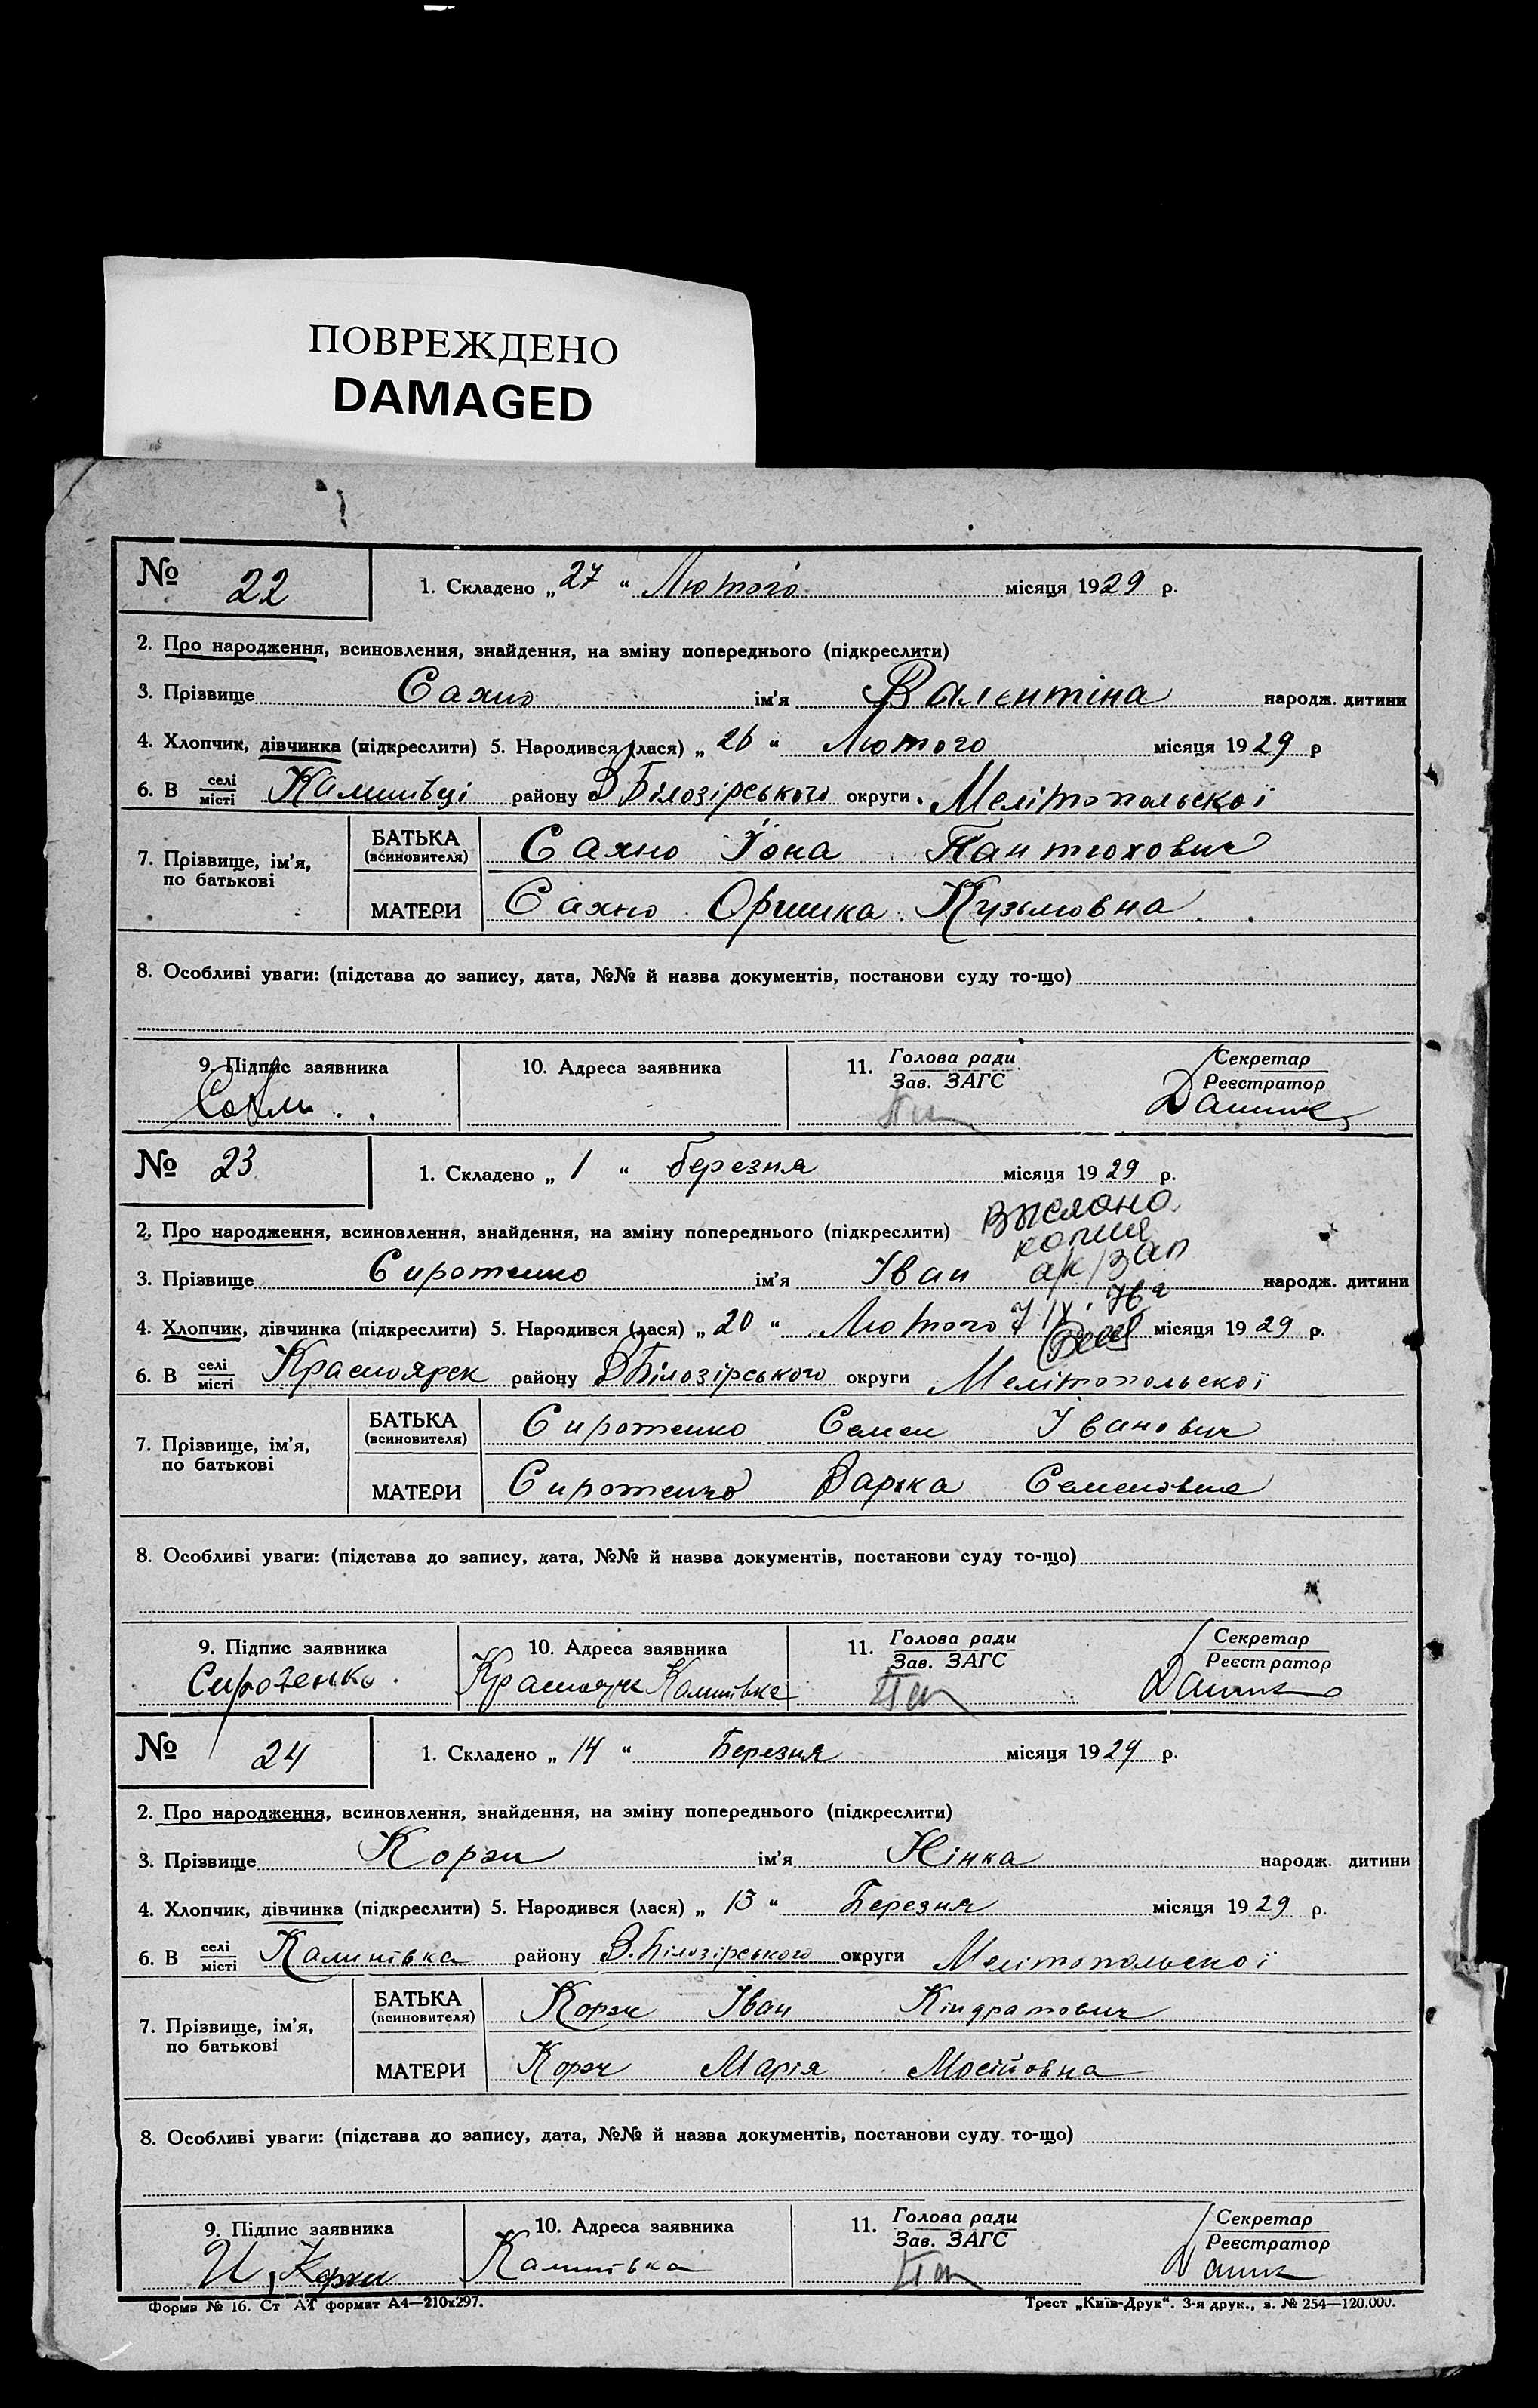 ПОВРЕЖДЕНО
DAMAGED
№ 22
1. Складено „27“ Лютого місяця 1929 р.
2. Про народження, всиновлення, знайдення, на зміну попереднього (підкреслити)
3. Прізвище Сахно ім’я Валентіна народж. дитини
4. Хлопчик, дівчинка (підкреслити) 5. Народився (лася) „26“ Лютого місяця 1929 р
6. В селі місті Калинівці району В Білозірського округи Мелітопольскої
7. Прізвище, ім’я, по батькові
БАТЬКА (всиновителя) Сахно Іона Пантюхович
МАТЕРИ Сахно Оришка Кузьмовна
8. Особливі уваги: (підстава до запису, дата, №№ й назва документів, постанови суду то-що)
9. Підпис заявника
10. Адреса заявника
11. Голова ради Зав. ЗАГС
Секретар Реєстратор
№ 23
1. Складено „1“ березня місяця 1929 р.
2. Про народження, всиновлення, знайдення, на зміну попереднього (підкреслити)
выслана
копия
а/к/зап
3. Прізвище Сиротенко ім’я Іван народж. дитини
4. Хлопчик, дівчинка (підкреслити) 5. Народився (лася) „20“ Лютого місяця 1929 р.
6. В селі місті Красноярск району В Білозірського округи Мелітопольскої
7. Прізвище, ім’я, по батькові
БАТЬКА (всиновителя) Сиротенко Семен Іванович
МАТЕРИ Сиротенко Варка Семеновна
8. Особливі уваги: (підстава до запису, дата, №№ й назва документів, постанови суду то-що)
9. Підпис заявника Сиротенко
10. Адреса заявника Калинівка
11. Голова ради Зав. ЗАГС
Секретар Реєстратор
№ 24
1. Складено „14“ Березня місяця 1929 р.
2. Про народження, всиновлення, знайдення, на зміну попереднього (підкреслити)
3. Прізвище Корж ім’я Нінка народж. дитини
4. Хлопчик, дівчинка (підкреслити) 5. Народився (лася) „13“ Березня місяця 1929 р.
6. В селі місті Калинівка району В. Білозірського округи Мелітопольскої
7. Прізвище, ім’я, по батькові
БАТЬКА (всиновителя) Корж Іван Кіндратович
МАТЕРИ Корж Марія Мосійовна
8. Особливі уваги: (підстава до запису, дата, №№ й назва документів, постанови суду то-що)
9. Підпис заявника И. Корж
10. Адреса заявника Калинівка
11. Голова ради Зав. ЗАГС
Секретар Реєстратор
Форма № 16. Ст АТ формат А4—210х297.
Трест „Київ-Друк“. 3-я друк., з. № 254—120.000.